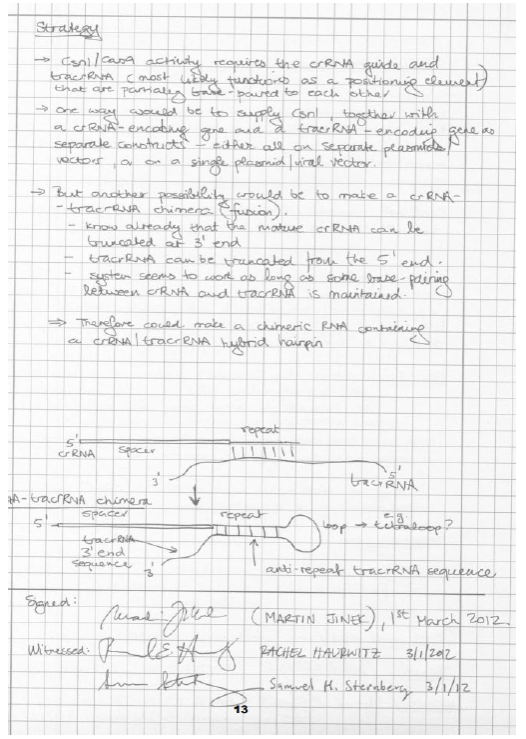 Strategy
→ Csn1/Cas9 activity requires the crRNA guide and
tracrRNA (most likely functions as a positioning element)
that are partially base-paired to each other
→ one way would be to supply Csn1, together with
a crRNA-encoding gene and a tracrRNA-encoding gene as
separate constructs - either all on separate plasmids/
vectors, or on a single plasmid/viral vector.
→ But another possibility would be to make a crRNA-
-tracrRNA chimera (fusion).
- know already that the mature crRNA can be
truncated at 3' end
- tracrRNA can be truncated from the 5' end.
- system seems to work as long as some base-pairing
between crRNA and tracrRNA is maintained.
⇒ Therefore could make a chimeric RNA containing
a crRNA/tracrRNA hybrid hairpin
repeat
5'
crRNA spacer
3' 5'
tracrRNA
A-tracrRNA chimera
spacer repeat
5' loop → e.g. tetraloop?
tracrRNA
3' end
sequence 3'
anti-repeat tracrRNA sequence
Signed:
(MARTIN JINEK), 1st March 2012.
Witnessed: RACHEL HAURWITZ 3/1/2012
Samuel H. Sternberg 3/1/12
13